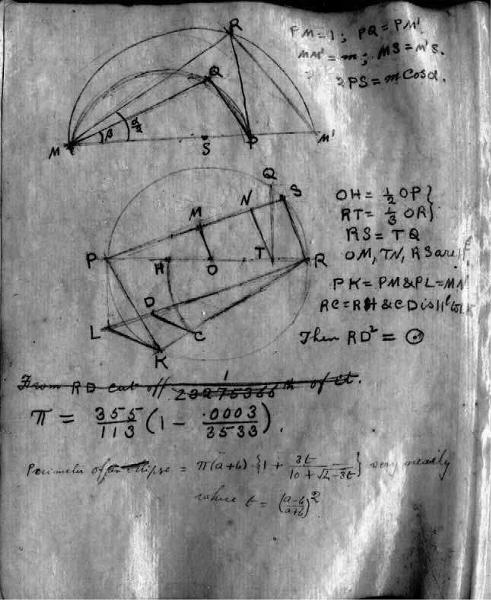 R
Q
M β α/2 S P M'
PM=1; PQ=PM'
MM'=m; MS=M'S.
2PS=m Cosα.
Q
S
N
M
P H O T R
D
L C
K
OH = 1/2 OP}
RT = 1/3 OR}
RS = TQ
OM, TN, RS are ||
PK = PM & PL = MN
RC = RH & CD is ||
Then RD² = ⊙
From RD cut off 1/ th of it.
π = 355/113 (1 - .0003/3533).
Perimeter of an ellipse = π(a+b) {1 + 3t/(10+√4-3t)} very nearly
where t = ((a-b)/(a+b))²